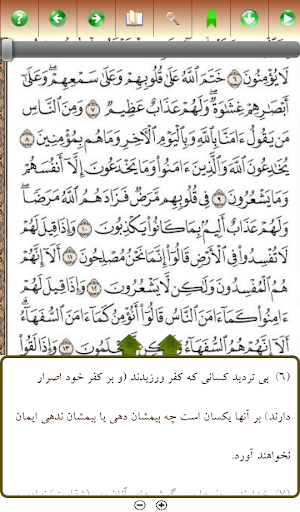 لَا يُؤْمِنُونَ ٦ خَتَمَ ٱللَّهُ عَلَىٰ قُلُوبِهِمْ وَعَلَىٰ سَمْعِهِمْ ۖ وَعَلَىٰٓ
أَبْصَـٰرِهِمْ غِشَـٰوَةٌ ۖ وَلَهُمْ عَذَابٌ عَظِيمٌ ٧ وَمِنَ ٱلنَّاسِ
مَن يَقُولُ ءَامَنَّا بِٱللَّهِ وَبِٱلْيَوْمِ ٱلْـَٔاخِرِ وَمَا هُم بِمُؤْمِنِينَ ٨
يُخَـٰدِعُونَ ٱللَّهَ وَٱلَّذِينَ ءَامَنُوا۟ وَمَا يَخْدَعُونَ إِلَّآ أَنفُسَهُمْ
وَمَا يَشْعُرُونَ ٩ فِى قُلُوبِهِم مَّرَضٌ فَزَادَهُمُ ٱللَّهُ مَرَضًا ۖ
وَلَهُمْ عَذَابٌ أَلِيمٌۢ بِمَا كَانُوا۟ يَكْذِبُونَ ١٠ وَإِذَا قِيلَ لَهُمْ
لَا تُفْسِدُوا۟ فِى ٱلْأَرْضِ قَالُوٓا۟ إِنَّمَا نَحْنُ مُصْلِحُونَ ١١ أَلَآ إِنَّهُمْ
هُمُ ٱلْمُفْسِدُونَ وَلَـٰكِن لَّا يَشْعُرُونَ ١٢ وَإِذَا قِيلَ لَهُمْ
ءَامِنُوا۟ كَمَآ ءَامَنَ ٱلنَّاسُ قَالُوٓا۟ أَنُؤْمِنُ كَمَآ ءَامَنَ ٱلسُّفَهَآءُ ۗ
أَلَآ إِنَّهُمْ هُمُ ٱلسُّفَهَآءُ يَعْلَمُونَ ١٣ وَإِذَا لَقُوا۟
(۶) بی تردید کسانی که کفر ورزیدند (و بر کفر خود اصرار
دارند) بر آنها یکسان است چه بیمشان دهی یا بیمشان ندهی ایمان
نخواهند آورد.